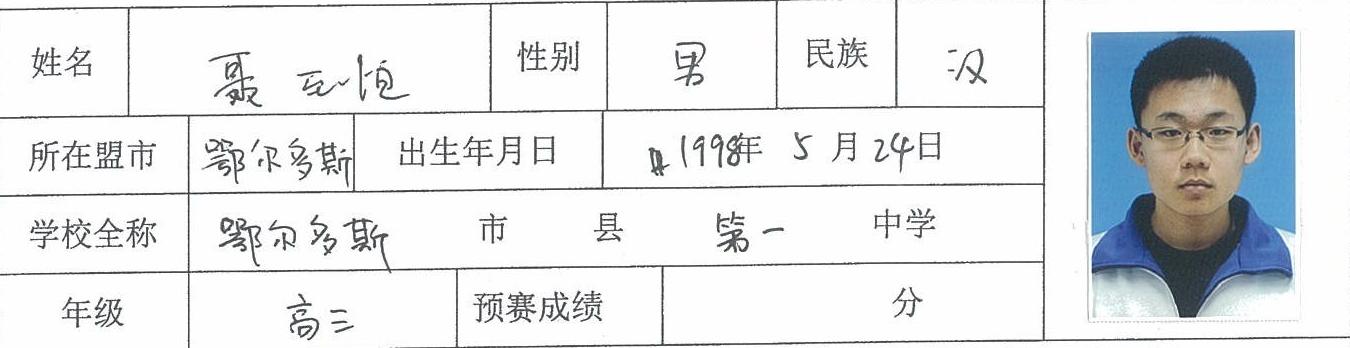 姓名 聂恒 性别 男 民族 汉
所在盟市 鄂尔多斯 出生年月日 1998年 5 月 24日
学校全称 鄂尔多斯 市 县 第一 中学
年级 高三 预赛成绩 分